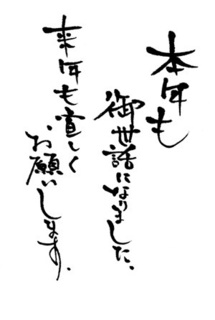 本年も
御世話になりました、
来年も宜しく
お願いします。